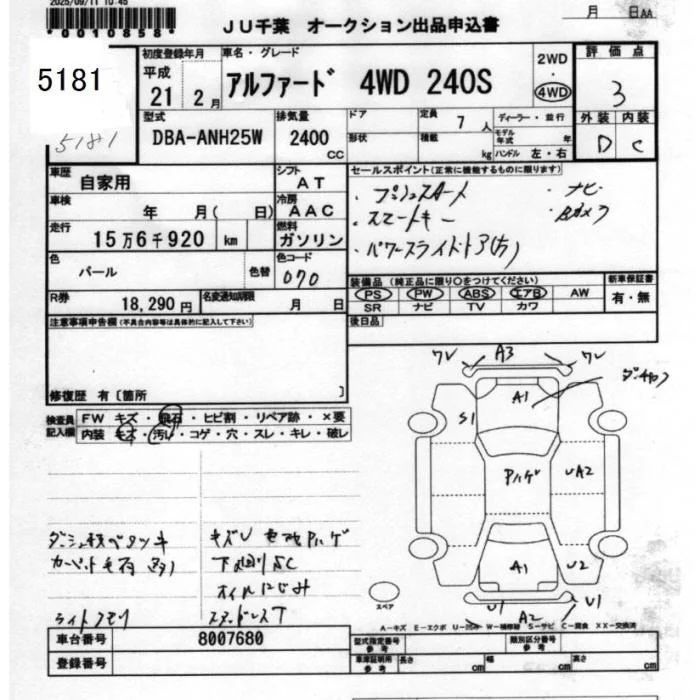 2025/09/11 10:45
*0010858*
JU千葉 オークション出品申込書
月 日AA
5181
5181
初度登録年月
平成
21 2月
車名・グレード
アルファード 4WD 240S
2WD
・
4WD
評価点
3
外装 内装
D C
型式
DBA-ANH25W
排気量
2400
CC
ドア
形状
定員
7人
積載
kg
ディーラー・並行
モデル年式 年
ハンドル 左・右
車歴
自家用
シフト
AT
車検
年 月( 日)
冷房
AAC
走行
15万6千920 km
燃料
ガソリン
色
パール
色替
色コード
070
R券
18,290円
名変通知期限
月 日
セールスポイント(正常に機能するものに限ります)
・プッシュスタート ・ナビ
・スマートキー ・Bカメラ
・パワースライドドア(方)
装備品 (純正品に限り○をつけてください)
PS PW ABS エアB AW
SR ナビ TV カワ
新車保証書
有・無
後日品
注意事項申告欄(不具合内容等は具体的に記入して下さい)
修復歴 有〔箇所 〕
検査員記入欄
FW キズ・飛石・ヒビ割・リペア跡・×要
内装 モケ・汚れ・コゲ・穴・スレ・キレ・破レ
ワレ A3 ワレ
A1
S1
Pハゲ
UA2
A1
U2
U1 A2 U1
スペア
キズU 色改 Pハゲ
下廻りSC
オイルにじみ
スタッドレスT
ライトクモリ
A-キズ E-エクボ U-凹み W-補修跡 S-サビ C-腐食 XX-交換済
車台番号
8007680
登録番号
型式指定番号
参考
類別区分番号
参考
車庫証明用
参考
長さ cm 幅 cm 高さ cm